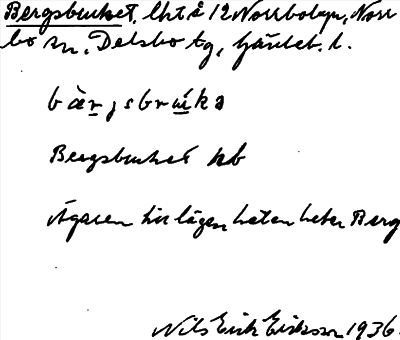 Bergsbruket, lht å 12 Norrbobyn, Norr
bo sn, Delsbo tg, Gävleb. l.
bær̲jsbru̲ka
Bergsbruket nb
Ägaren här lägenheten heter Berg
Nils Erik Eriksson 1936.